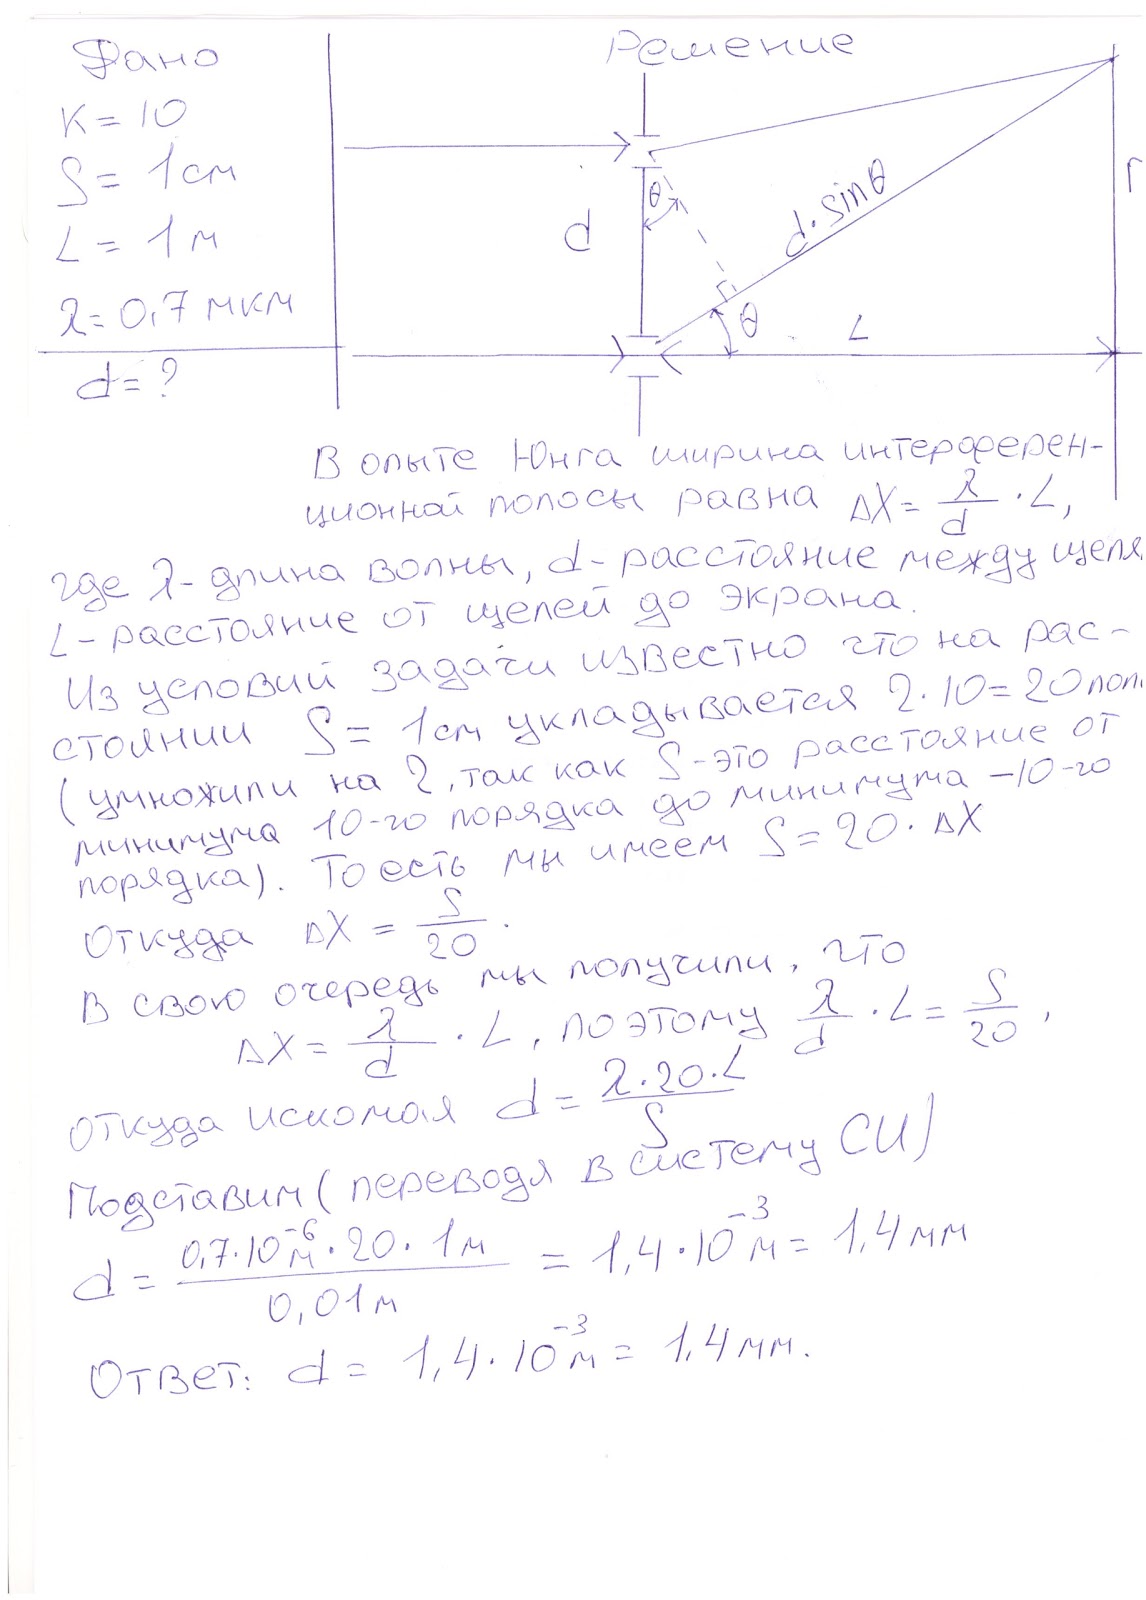 Дано
Решение
K = 10
S = 1 см
L = 1 м
λ = 0,7 мкм
d = ?
d
θ
d·sinθ
θ
L
В опыте Юнга ширина интерферен-
ционной полосы равна ΔX = λ/d · L,
где λ - длина волны, d - расстояние между щеля
L - расстояние от щелей до экрана.
Из условий задачи известно что на рас-
стоянии S = 1 см укладывается 2·10 = 20 пол
(умножили на 2, так как S - это расстояние от
минимума 10-го порядка до минимума -10-го
порядка). То есть мы имеем S = 20 · ΔX
Откуда ΔX = S/20.
В свою очередь мы получили, что
ΔX = λ/d · L, поэтому λ/d · L = S/20,
откуда искомая d = λ·20·L/S
Подставим (переводя в систему СИ)
d = 0,7·10⁻⁶ м · 20 · 1 м / 0,01 м = 1,4·10⁻³ м = 1,4 мм
Ответ: d = 1,4·10⁻³ м = 1,4 мм.